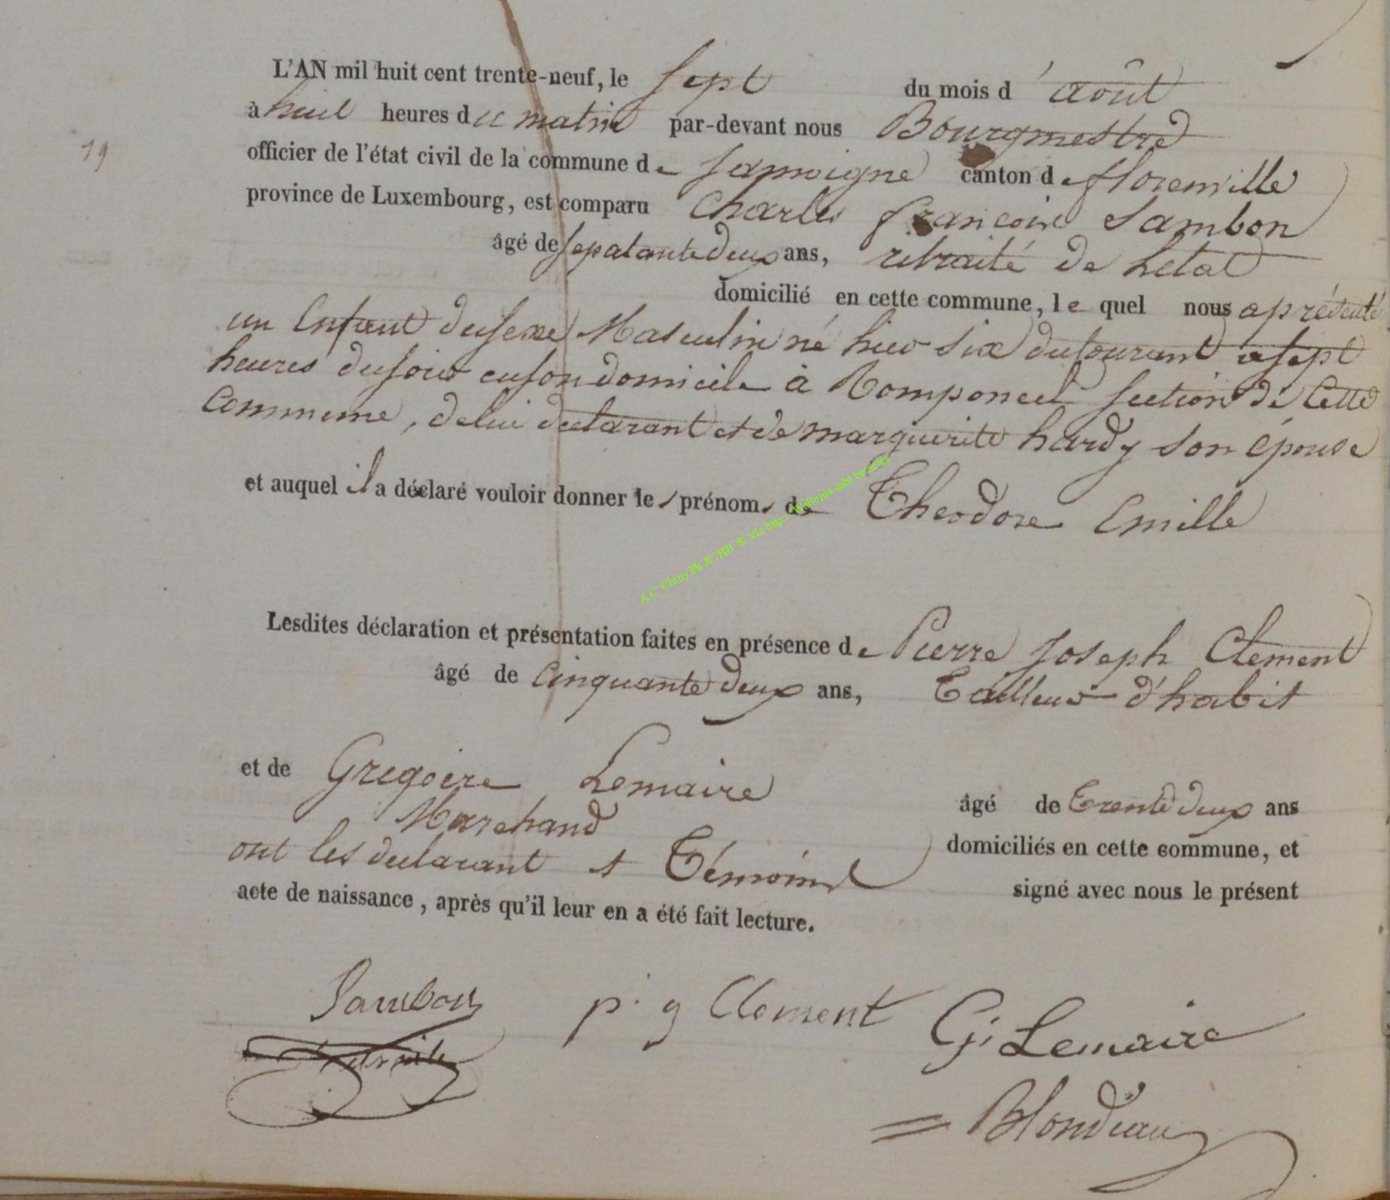 L'AN mil huit cent trente-neuf, le sept du mois d'août
à huit heures du matin par-devant nous Bourgmestre
19
officier de l'état civil de la commune de Jamoigne canton de florenville
province de Luxembourg, est comparu Charles francois Jambon
âgé de sepatante deux ans, retraité de letat
domicilié en cette commune, le quel nous a présenté
un Enfant du sexe Masculin né hier six du courant a sept
heures du soir en son domicile à Romponcel section de Cette
Commune, de lui declarant et de marguerite hardy son épouse
et auquel il a déclaré vouloir donner les prénoms de Theodore Emille
Lesdites déclaration et présentation faites en présence de Pierre Joseph Clement
âgé de Cinquante deux ans, Tailleur d'habit
et de Gregoire Lemaire
Marchand
âgé de Trente deux ans
domiciliés en cette commune, et
ont les declarant et Témoins
signé avec nous le présent
acte de naissance, après qu'il leur en a été fait lecture.
Jambon
retraité
p. j Clement
G. Lemaire
Blondiau